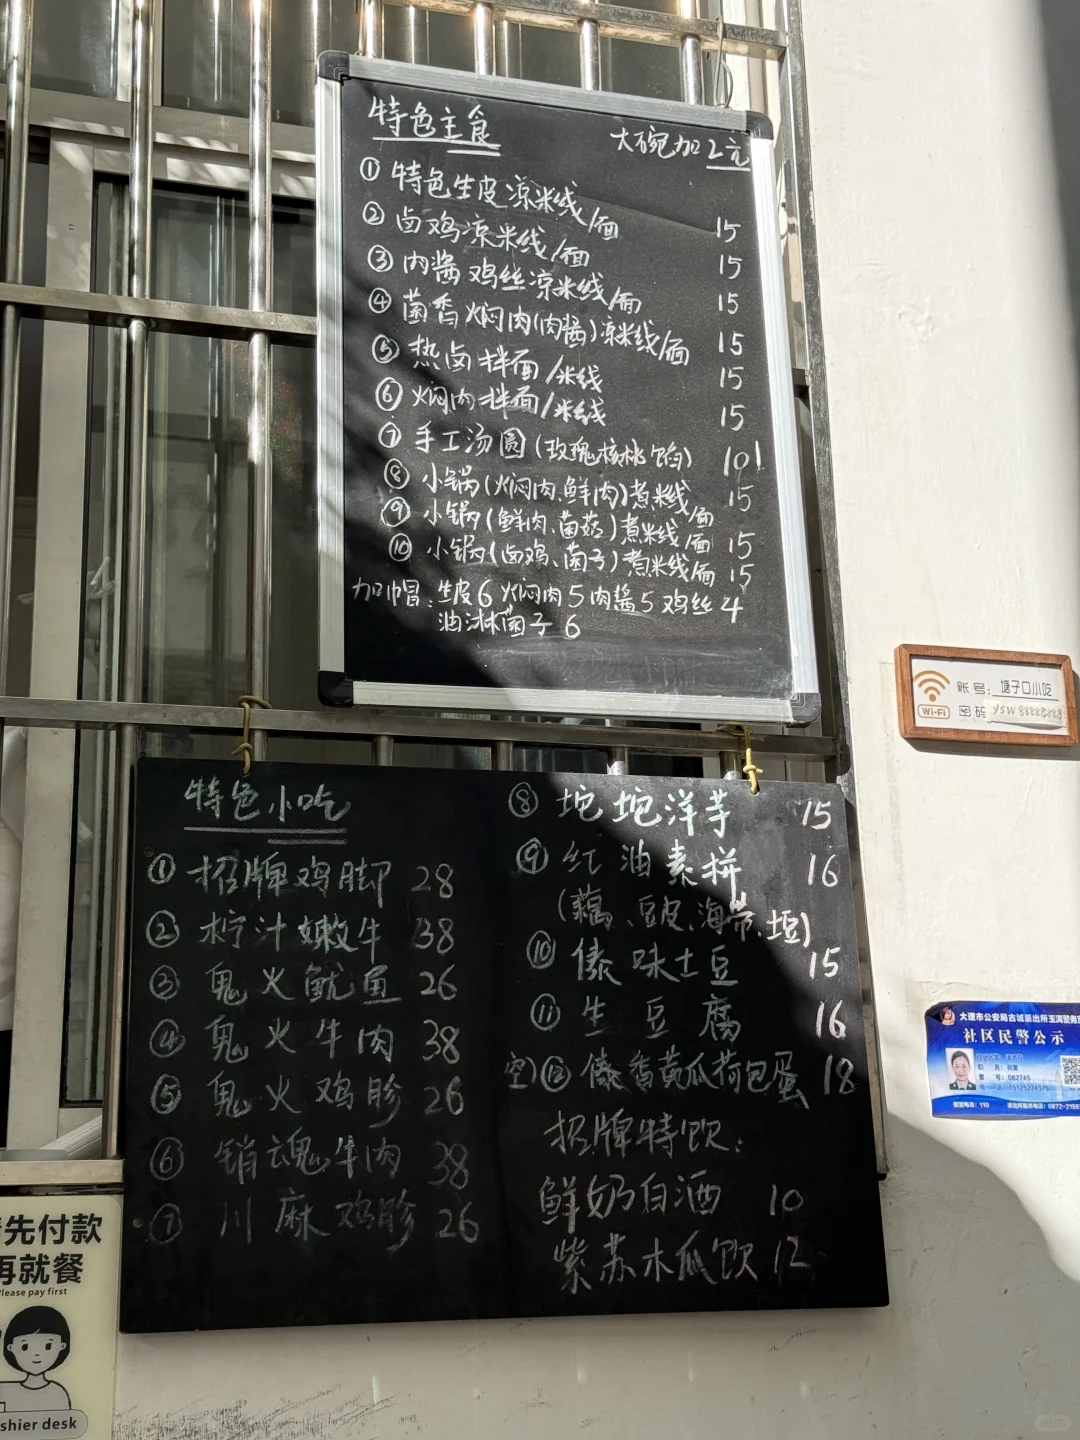 特色主食
大碗加2元
① 特色生皮凉米线/面 15
② 卤鸡凉米线/面 15
③ 肉酱鸡丝凉米线/面 15
④ 菌香焖肉(肉酱)凉米线/面 15
⑤ 热卤拌面/米线 15
⑥ 焖肉拌面/米线 15
⑦ 手工汤圆(玫瑰核桃馅) 10
⑧ 小锅(焖肉、鲜肉)煮米线/面 15
⑨ 小锅(鲜肉、菌菇)煮米线/面 15
⑩ 小锅(卤鸡、菌子)煮米线/面 15
加帽:生皮6 焖肉5 肉酱5 鸡丝4
油淋菌子 6
特色小吃
① 招牌鸡脚 28
② 柠汁嫩牛 38
③ 鬼火鱿鱼 26
④ 鬼火牛肉 38
⑤ 鬼火鸡胗 26
⑥ 销魂牛肉 38
⑦ 川麻鸡胗 26
⑧ 坨坨洋芋 15
⑨ 红油素拼 16
(藕、豆皮、海带、土豆)
⑩ 傣味土豆 15
⑪ 生豆腐 16
⑫ 傣香黄瓜荷包蛋 18
招牌特饮:
鲜奶白酒 10
紫苏木瓜饮 12
Wi-Fi
账号: 塘子口小吃
密码 ysw88888888
大理市公安局古城派出所玉洱警务
社区民警公示
号:082745
报警电话:110
先付款
再就餐
Please pay first
shier desk